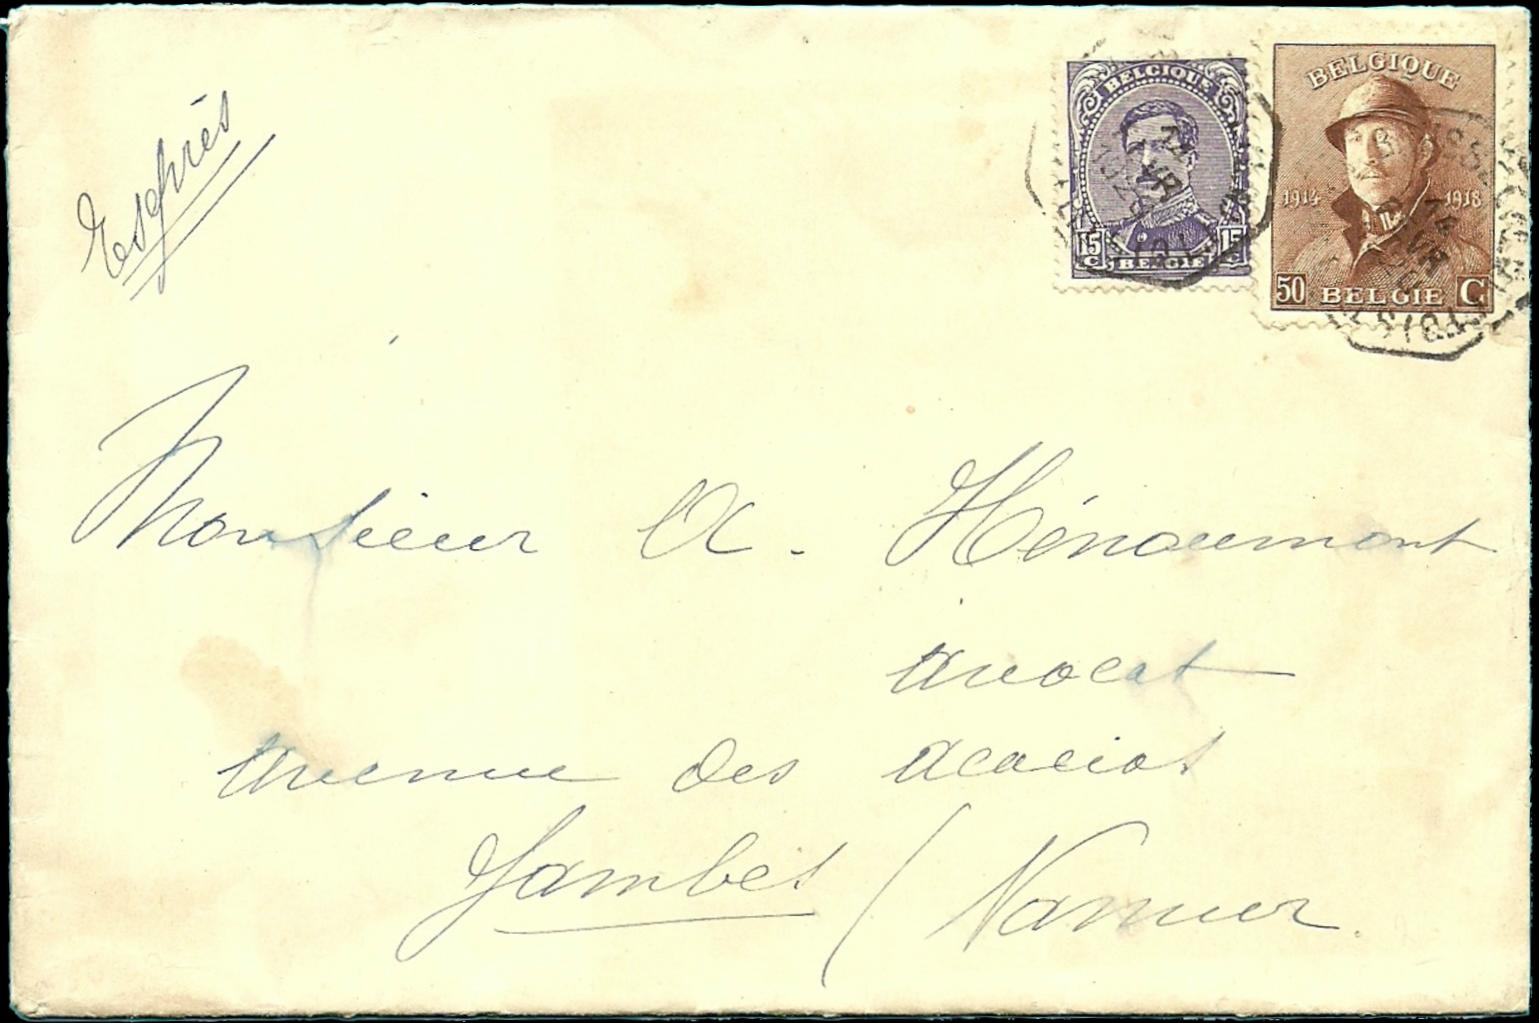 Exprès
BELGIQUE
15 C 15 C
BELGIË
BELGIQUE
1914 1918
50 BELGIË C
14
AVR
Monsieur A. Hénoumont
avocat
Avenue des Acacias
Jambes (Namur.